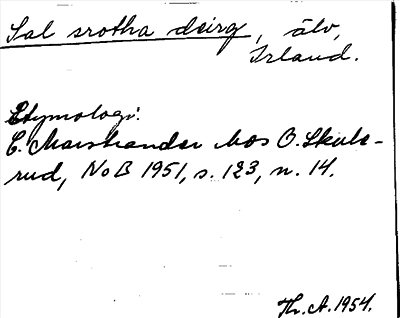 Sal srotha deirg, älv,
Irland.
Etymologi:
C. Marstrander hos O. Skuls-
rud, NoB 1951, s. 123, n. 14.
Th. A. 1954.